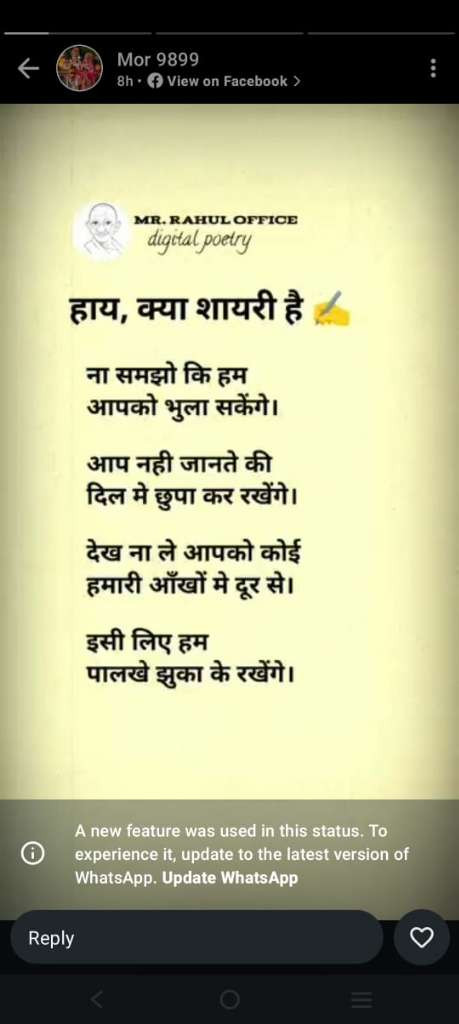 Mor 9899
8h • View on Facebook >
MR. RAHUL OFFICE
digital poetry
हाय, क्या शायरी है ✍️
ना समझो कि हम
आपको भुला सकेंगे।
आप नही जानते की
दिल मे छुपा कर रखेंगे।
देख ना ले आपको कोई
हमारी आँखों मे दूर से।
इसी लिए हम
पालखे झुका के रखेंगे।
A new feature was used in this status. To
experience it, update to the latest version of
WhatsApp. Update WhatsApp
Reply